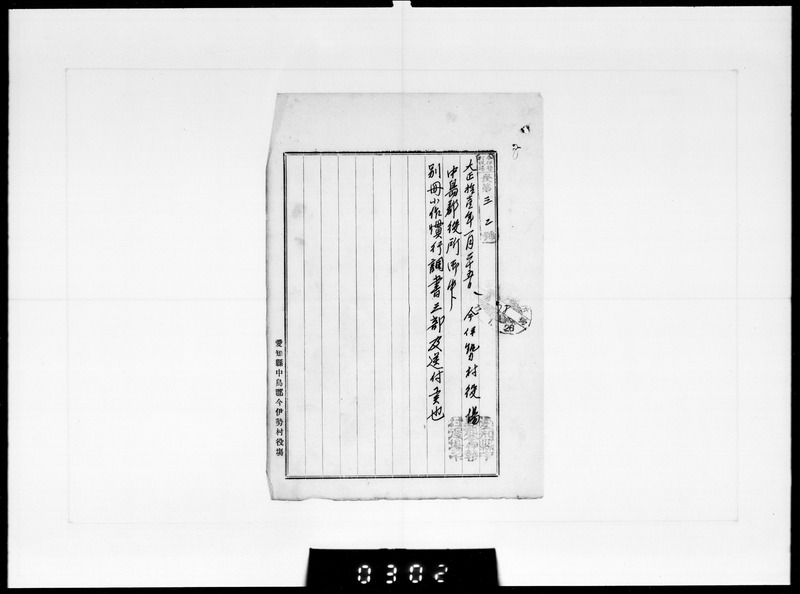 発第三二號
大正拾壹年一月二十五日 今伊勢村役場
中島郡役所御中
別冊小作慣行調書三部及送付候也
愛知縣中島郡今伊勢村役場
26
0302